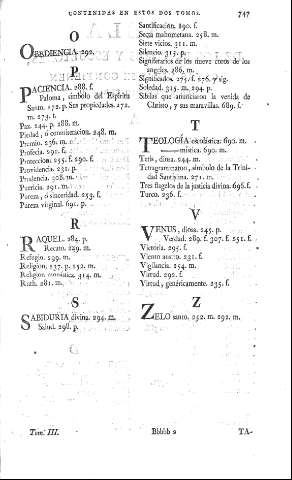 CONTENIDAS EN ESTOS DOS TOMOS. 747
O
OBEDIENCIA. 292.
P
PACIENCIA. 288. f.
Paloma, simbolo del Espiritu
Santo. 172. p. Sus propiedades. 272.
m. 273. f.
Paz. 244. p. 288. m.
Piedad, ú comunicacion. 248. m.
Premio. 236. m.
Profecía. 292. f.
Proteccion. 255. f. 290. f.
Providencia. 231. p.
Prudencia. 208. m.
Puericia. 291. m.
Pureza, ó sinceridad. 253. f.
Pureza virginal. 691. p.
R
RAQUEL. 284. p.
Recato. 229. m.
Refugio. 299. m.
Religion. 237. p. 252. m.
Religion monástica. 314. m.
Ruth. 281. m.
S
SABIDURIA divina. 294. m.
Salud. 298. p.
Santificacion. 290. f.
Secta mahometana. 258. m.
Siete vicios. 311. m.
Silencio. 315. p.
Significatos de los nueve coros de los
angeles. 286. m.
Significados. 275. f. 276. y sig.
Soledad. 315. m. 294. p.
Sibilas que anunciaron la venida de
Christo, y sus maravillas. 689. f.
T
TEOLOGÍA escolástica. 690. m.
mística. 690. m.
Tetis, diosa. 244. m.
Tetragrammaton, simbolo de la Trini-
dad Santisima. 271. m.
Tres flagelos de la justicia divina. 696. f.
Turco. 256. f.
V
VENUS, diosa. 245. p.
Verdad. 289. f. 307. f. 251. f.
Victoria. 295. f.
Viento austro. 231. f.
Vigilancia. 254. m.
Virtud. 292. f.
Virtud, genéricamente. 235. f.
Z
ZELO santo. 252. m. 292. m.
Tom. III. Bbbbb 2 TA-